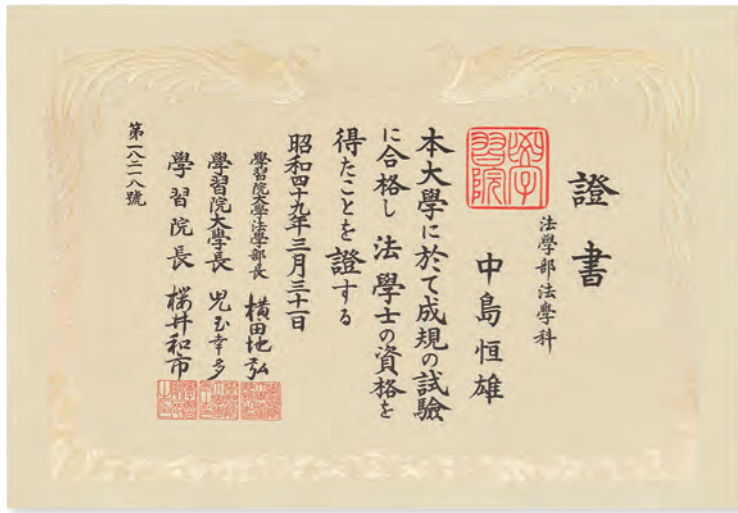 證書
法學部法學科
學習院
中島恒雄
本大學に於て成規の試驗
に合格し法學士の資格を
得たことを證する
昭和四十九年三月三十一日
學習院大學法學部長 横田地弘
學習院大學長 児玉幸多
學習院長 櫻井和市
第一八二一八號